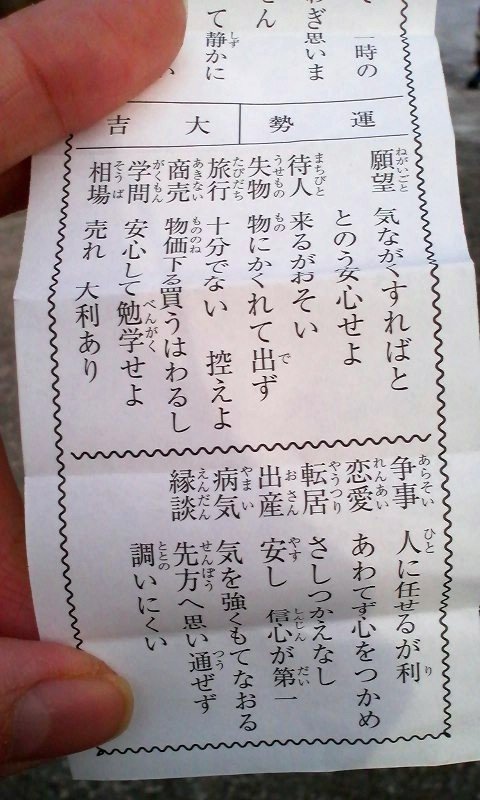 一時の
ぎ思いま
さん
て静かに
い
運勢 大吉
願望 気ながくすればと
とのう安心せよ
待人 来るがおそい
失物 物にかくれて出ず
旅行 十分でない 控えよ
商売 物価下る買うはわるし
学問 安心して勉学せよ
相場 売れ 大利あり
争事 人に任せるが利
恋愛 あわてず心をつかめ
転居 さしつかえなし
出産 安し 信心が第一
病気 気を強くもてなおる
縁談 先方へ思い通ぜず
調いにくい